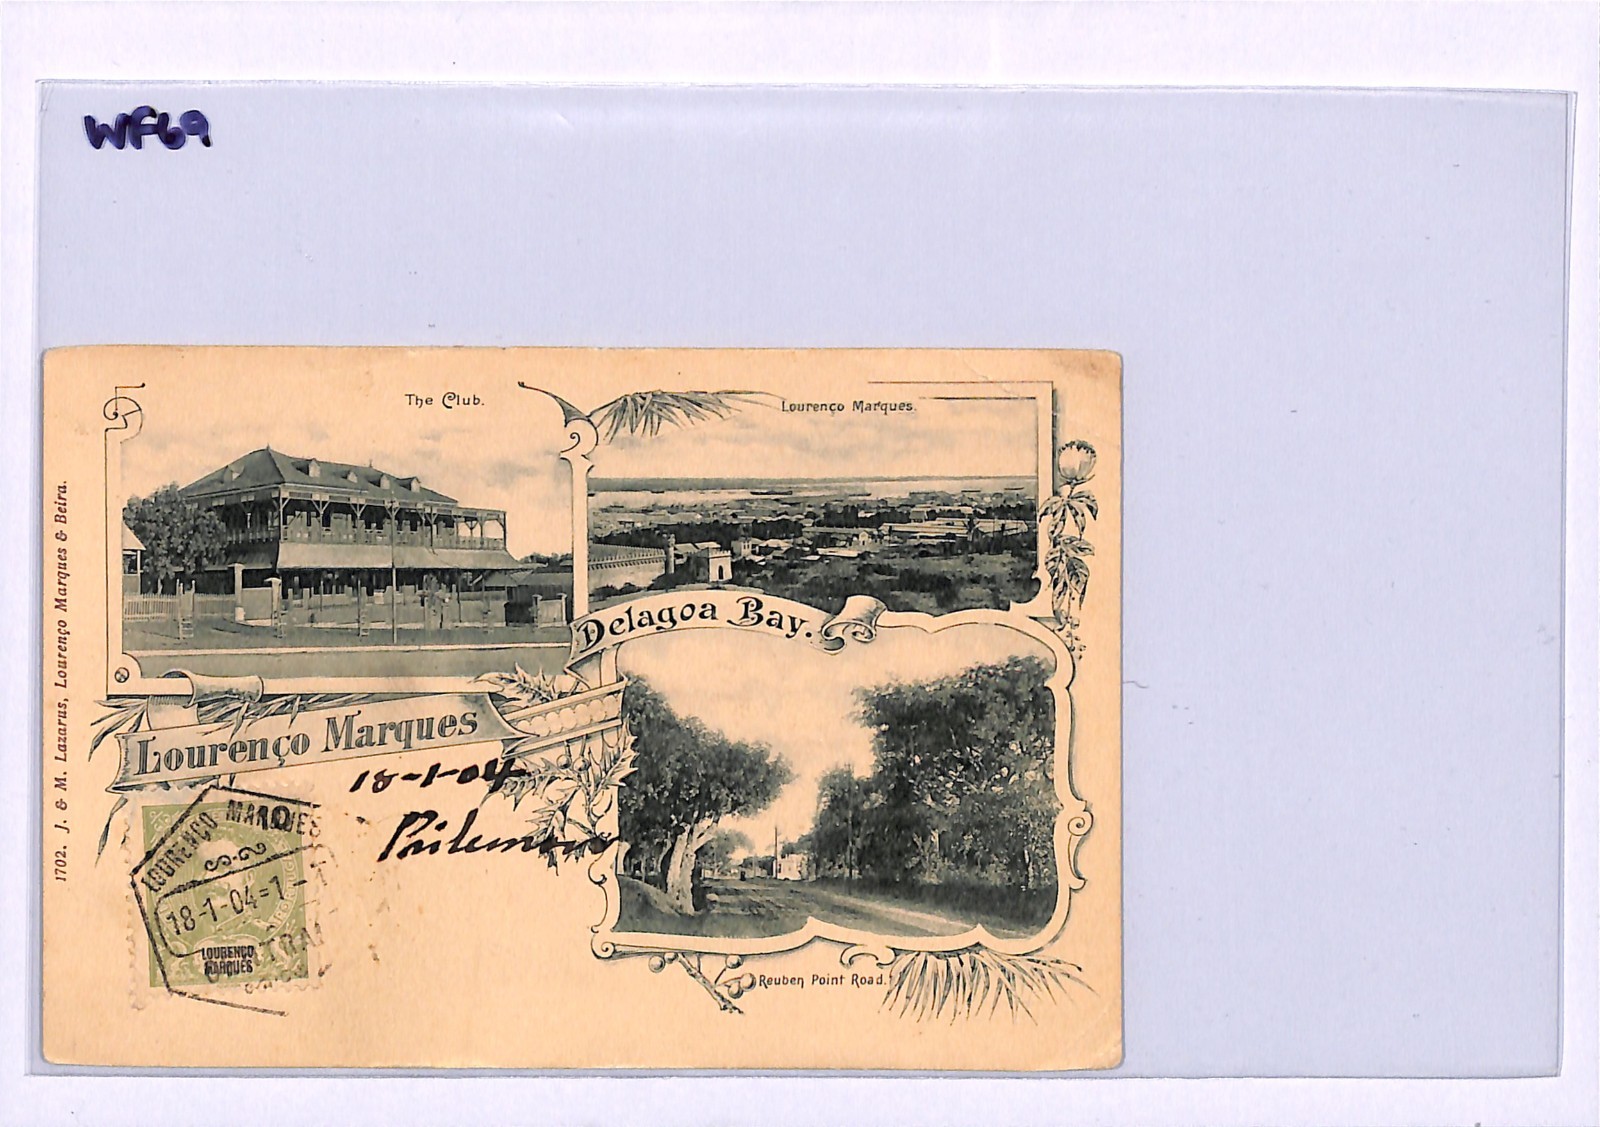 WF69
The Club.
Lourenço Marques.
Delagoa Bay.
Lourenço Marques
18-1-04
LOURENÇO MARQUES
18-1-04
LOURENÇO
MARQUES
Reuben Point Road.
1702. J. & M. Lazarus, Lourenço Marques & Beira.